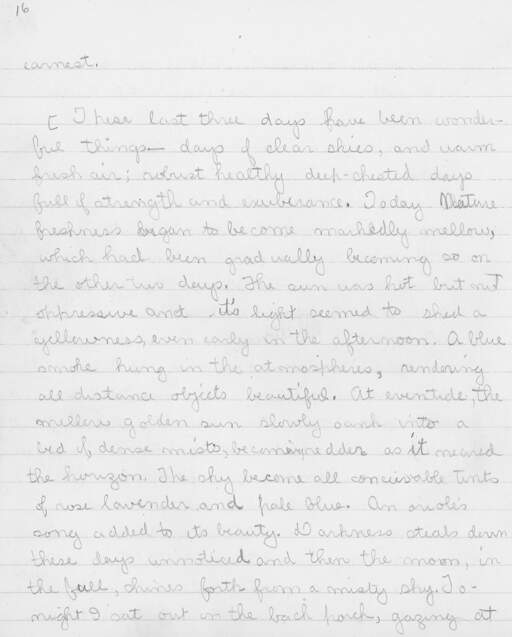 16
earnest.
[ These last three days have been wonder-
ful things — days of clear skies, and warm
fresh air; robust healthy deep-chested days
full of strength and exuberance. Today Nature
freshness began to become markedly mellow,
which had been gradually becoming so on
the other two days. The sun was hot but not
oppressive and it's light seemed to shed a
yellowness, even early in the afternoon. A blue
smoke hung in the atmospheres, rendering
all distance objects beautiful. At eventide, the
mellow golden sun slowly sank into a
bed of dense mists, becoming redder as it neared
the horizon. The sky become all conceivable tints
of rose lavender and pale blue. An oriole's
song added to its beauty. Darkness steals down
these days unnoticed and then the moon, in
the full, shines forth from a misty sky. To-
night I sat out in the back porch, gazing at